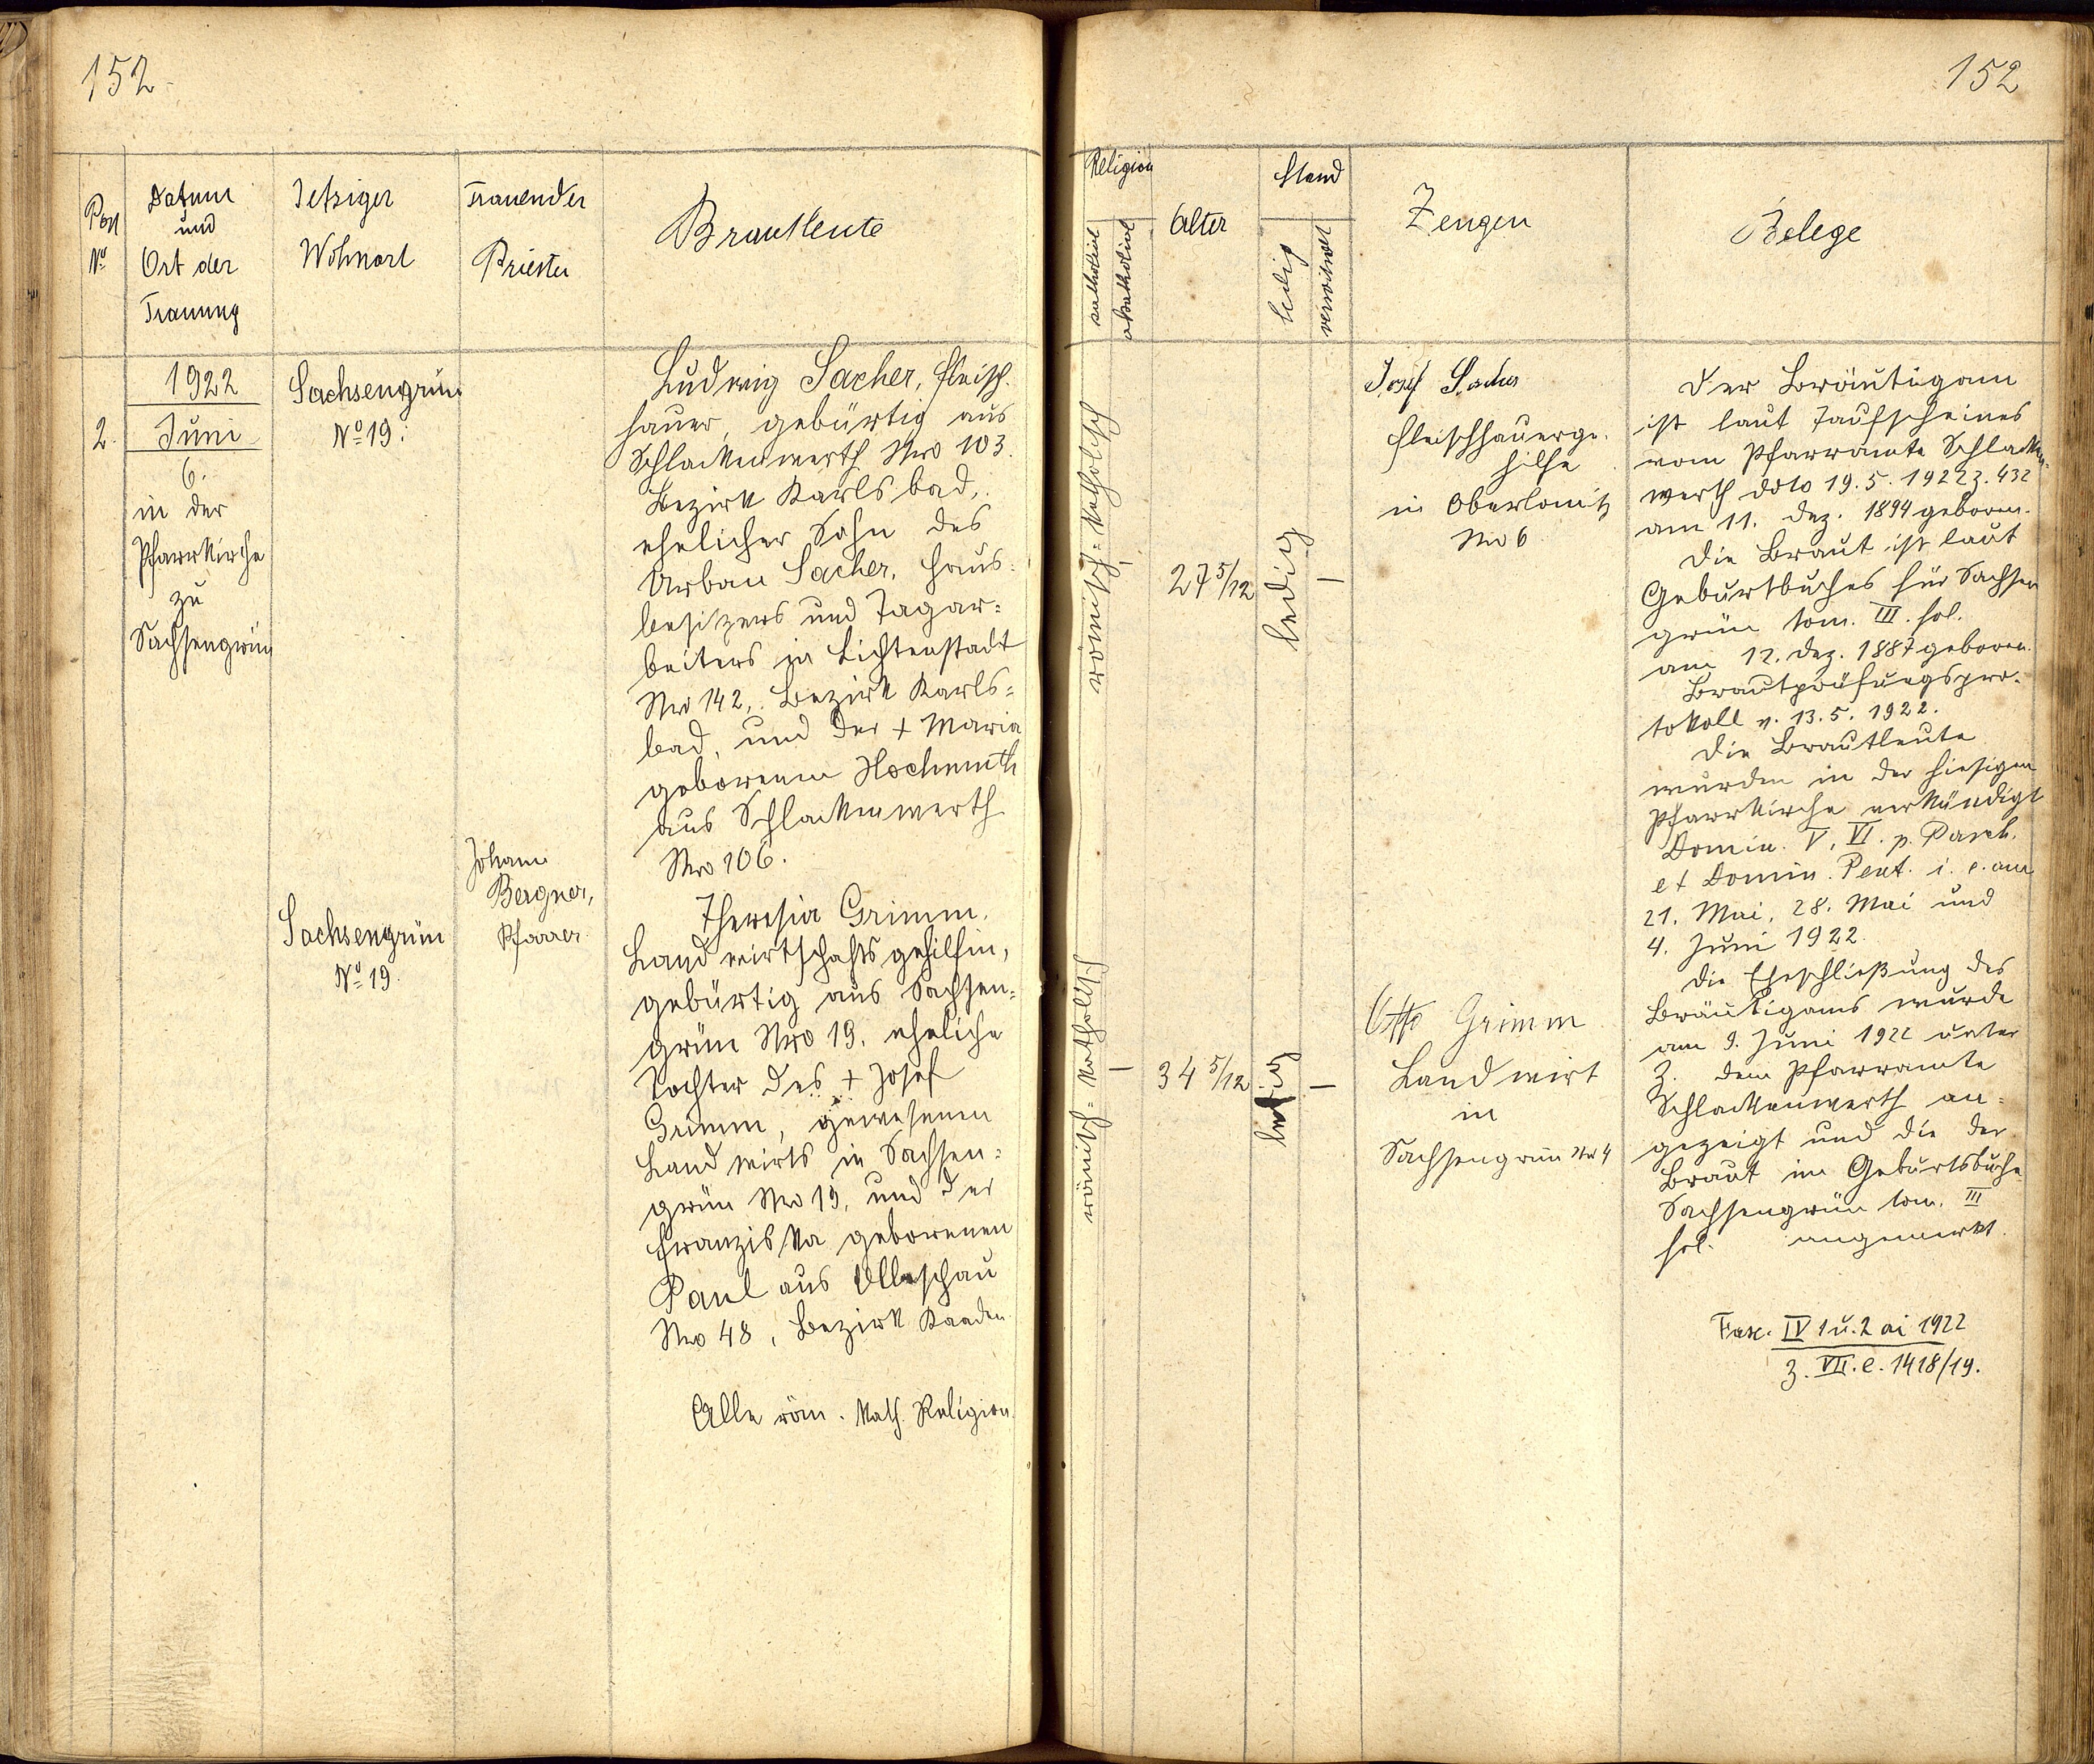 152
Post
No
Datum
und
Ort der
Trauung
Jetziger
Wohnort
Trauender
Priester
Brautleute
2.
1922
Juni
6.
in der
Pfarrkirche
zu
Sachsengrün
Sachsengrün
No 19.
Sachsengrün
No 19.
Johann
Bergner,
Pfarrer
Ludwig Sacher, Fleisch-
hauer, gebürtig aus
Schlackenwerth Nro 103.
Bezirk Karlsbad,
ehelicher Sohn des
Urban Sacher, Haus-
besitzers und Tagar-
beiters in Lichtenstadt
Nro 142, Bezirk Karls-
bad, und der + Maria
geborenen Hochmuth
aus Schlackenwerth
Nro 106.
Theresia Grimm,
Landwirtschaftsgehilfin,
gebürtig aus Sachsen-
grün Nro 19, eheliche
Tochter des + Josef
Grimm, gewesenen
Landwirts in Sachsen-
grün Nro 19, und der
Franziska geborenen
Paul aus Olleschau
Nro 48, Bezirk Kaaden.
Alle röm. kath. Religion.
152
Religion
katholisch
akatholisch
Alter
Stand
ledig
verwitwet
Zeugen
Belege
römisch-katholisch
27 5/12
ledig
–
römisch-katholisch
–
34 5/12
ledig
–
Josef Sacher
Fleischhauerge-
hilfe
in Oberlomitz
Nro 6
Otto Grimm
Landwirt
in
Sachsengrün Nro 4
Der Bräutigam
ist laut Taufscheines
vom Pfarramte Schlacken-
werth ddto 19.5.1922 Z. 432
am 11. Dez. 1894 geboren.
Die Braut ist laut
Geburtbuches für Sachsen
grün tom. III. fol.
am 12. Dez. 1887 geboren.
Brautprüfungspro-
tokoll v. 13.5.1922.
Die Brautleute
wurden in der hiesigen
Pfarrkirche verkündigt
Domin. V, VI. p. Pasch.
et Domin. Pent. i. e. am
21. Mai, 28. Mai und
4. Juni 1922.
Die Eheschließung des
Bräutigams wurde
am 9. Juni 1922 unter
Z. dem Pfarramte
Schlackenwerth an-
gezeigt und die der
Braut im Geburtsbuche
Sachsengrün tom. III
fol. angemerkt.
Fasc. IV 1 u. 2 ai 1922
Z. VII. e. 1418/19.